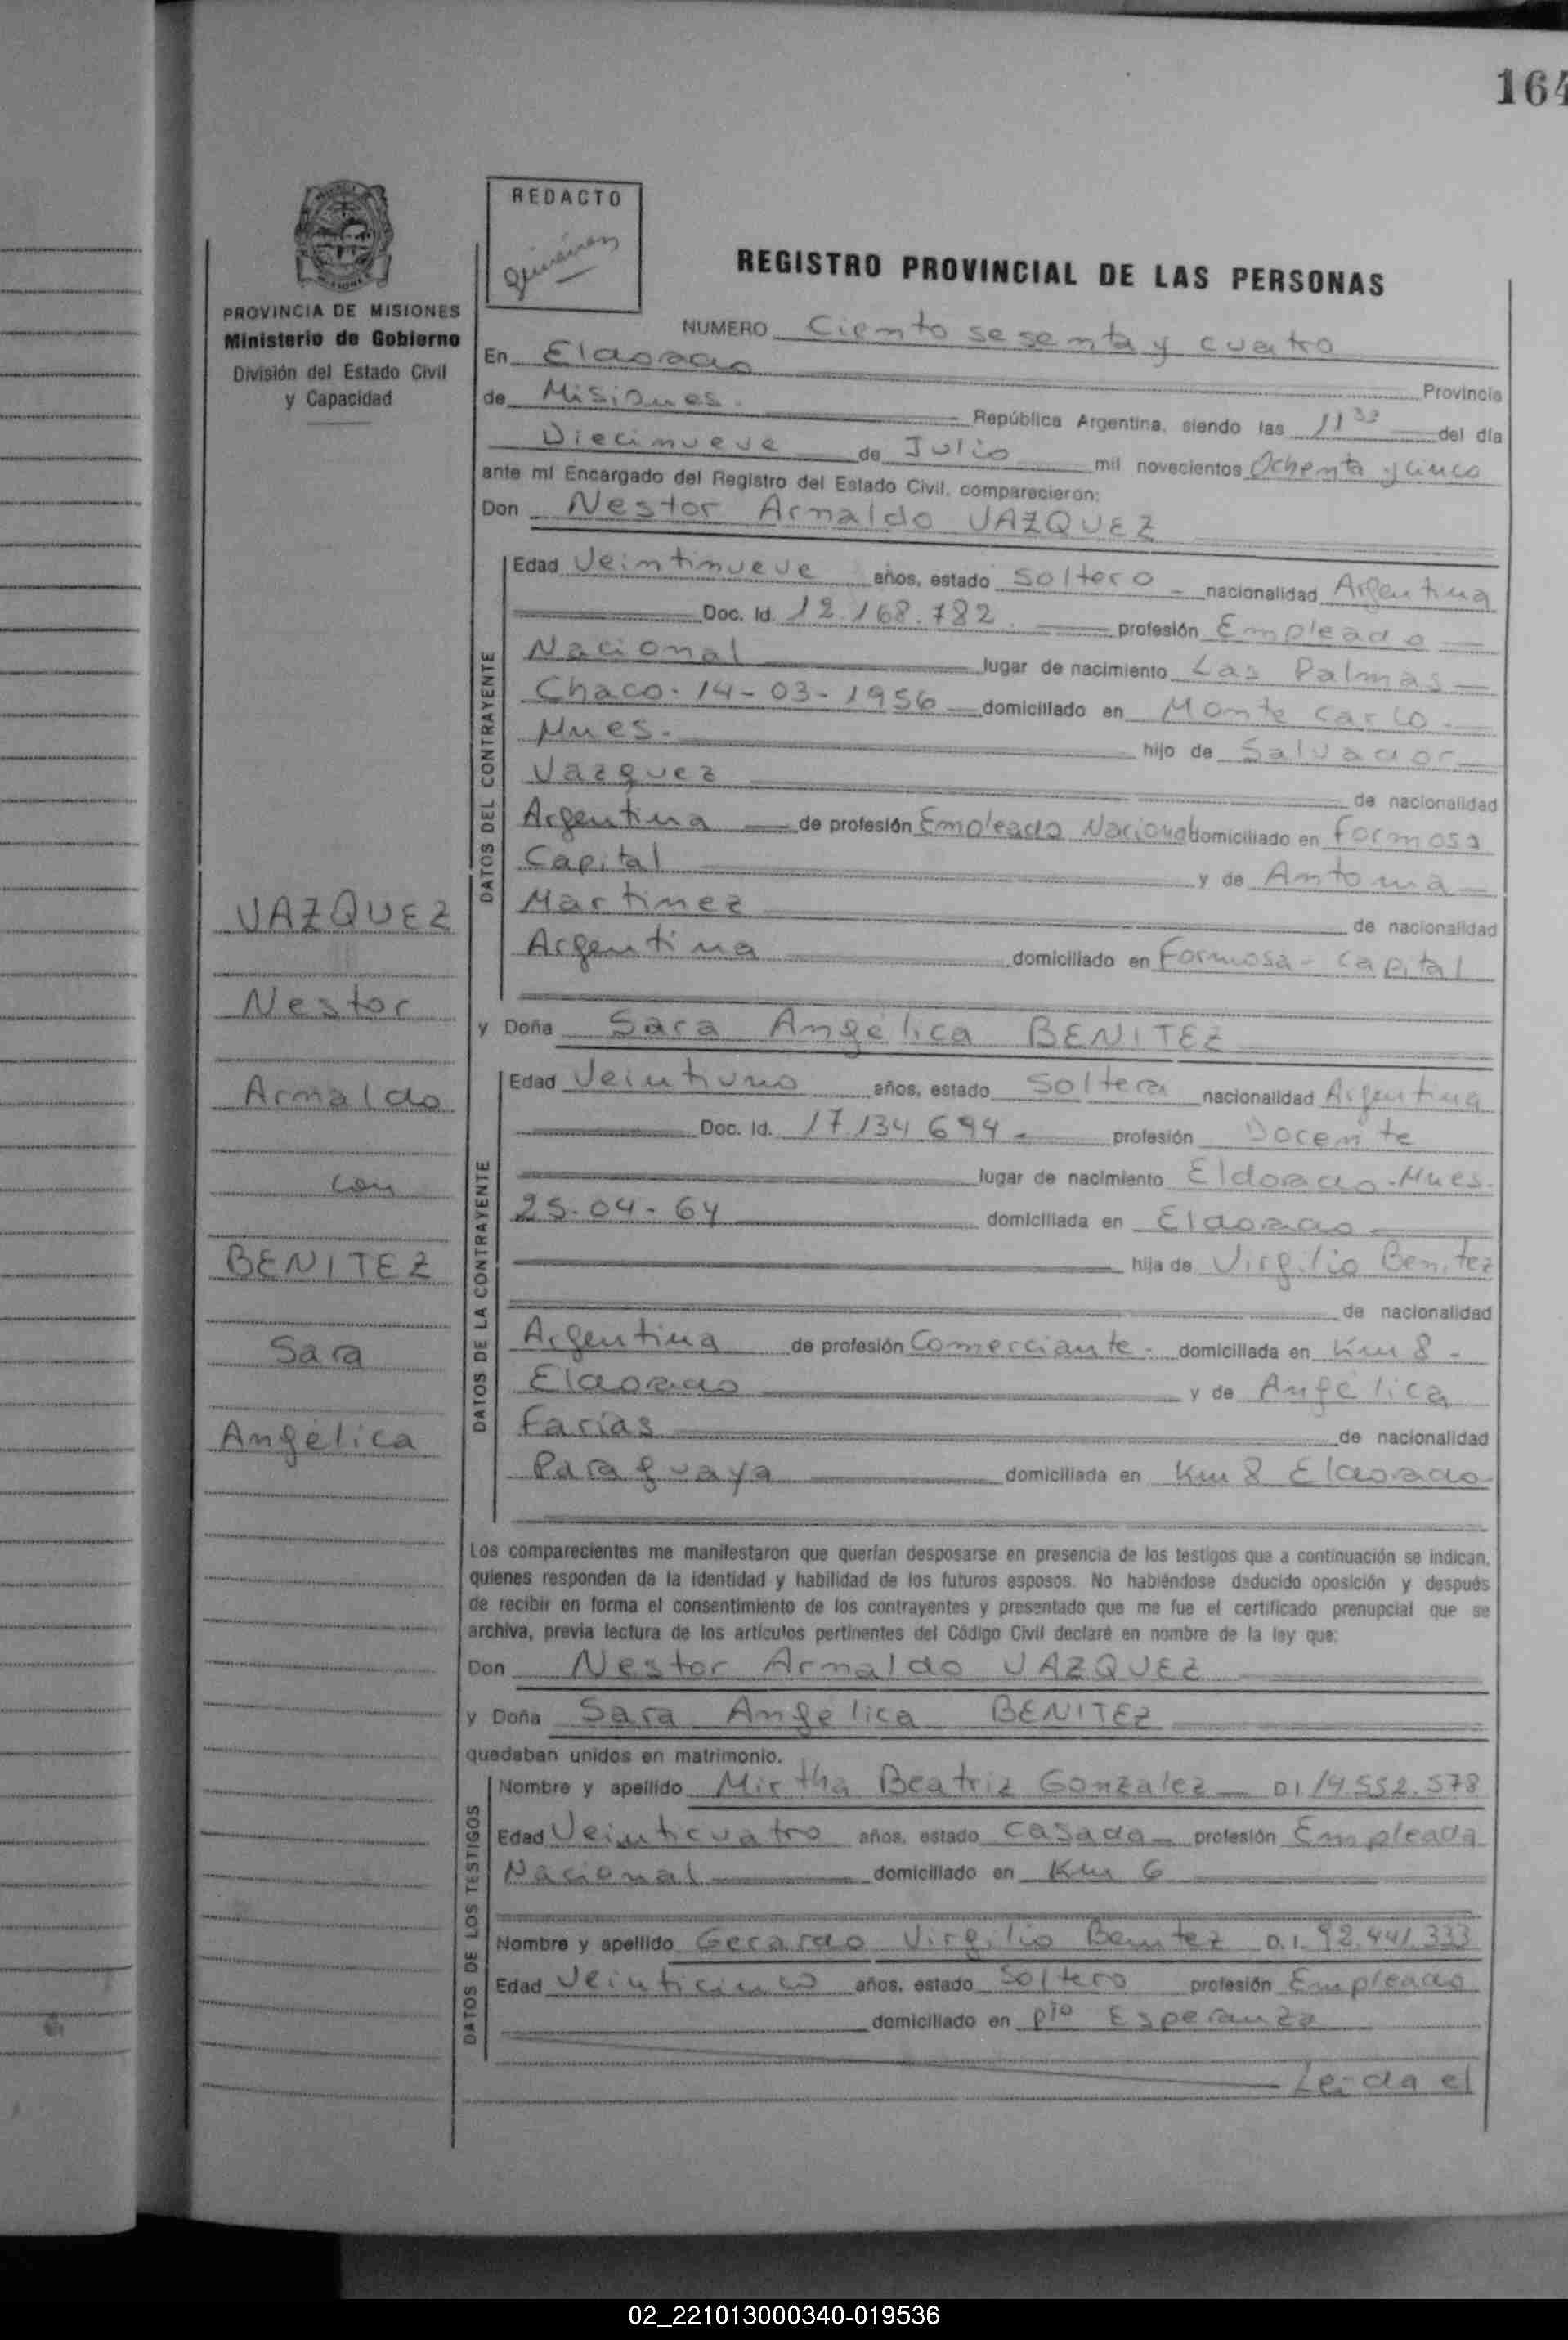 164
REDACTO
Quiñónez
PROVINCIA DE MISIONES
Ministerio de Gobierno
División del Estado Civil
y Capacidad
REGISTRO PROVINCIAL DE LAS PERSONAS
NUMERO Ciento sesenta y cuatro
En Eldorado Provincia
de Misiones. República Argentina, siendo las 11 30 del día
Diecinueve de Julio mil novecientos Ochenta y cinco
ante mí Encargado del Registro del Estado Civil, comparecieron:
Don Nestor Arnaldo VAZQUEZ
DATOS DEL CONTRAYENTE
Edad Veintinueve años, estado Soltero - nacionalidad Argentina
Doc. Id. 12.168.782. profesión Empleado
Nacional lugar de nacimiento Las Palmas
Chaco. 14-03-1956 domiciliado en Monte Carlo.
Mnes. hijo de Salvador
Vazquez de nacionalidad
Argentina de profesión Empleado Nacional domiciliado en Formosa
Capital y de Antonia
Martinez de nacionalidad
Argentina domiciliado en Formosa - Capital
y Doña Sara Angélica BENITEZ
DATOS DE LA CONTRAYENTE
Edad Veintiuno años, estado Soltera nacionalidad Argentina
Doc. Id. 17.134.694 - profesión Docente
lugar de nacimiento Eldorado - Mnes.
25-04-64 domiciliada en Eldorado
hija de Virgilio Benitez
de nacionalidad
Argentina de profesión Comerciante - domiciliada en Km 8 -
Eldorado y de Angélica
Farías de nacionalidad
Paraguaya domiciliada en Km 8 Eldorado
Los comparecientes me manifestaron que querían desposarse en presencia de los testigos que a continuación se indican,
quienes responden de la identidad y habilidad de los futuros esposos. No habiéndose deducido oposición y después
de recibir en forma el consentimiento de los contrayentes y presentado que me fue el certificado prenupcial que se
archiva, previa lectura de los artículos pertinentes del Código Civil declaré en nombre de la ley que:
Don Nestor Arnaldo VAZQUEZ
y Doña Sara Angélica BENITEZ
quedaban unidos en matrimonio.
DATOS DE LOS TESTIGOS
Nombre y apellido Mirtha Beatriz Gonzalez D.I 14.552.578
Edad Veinticuatro años, estado Casada profesión Empleada
Nacional domiciliado en Km 6
Nombre y apellido Gerardo Virgilio Benitez D.I. 92.441.333
Edad Veinticinco años, estado Soltero profesión Empleado
domiciliado en Pto Esperanza
Leida el
VAZQUEZ
Nestor
Arnaldo
con
BENITEZ
Sara
Angélica
02_221013000340-019536